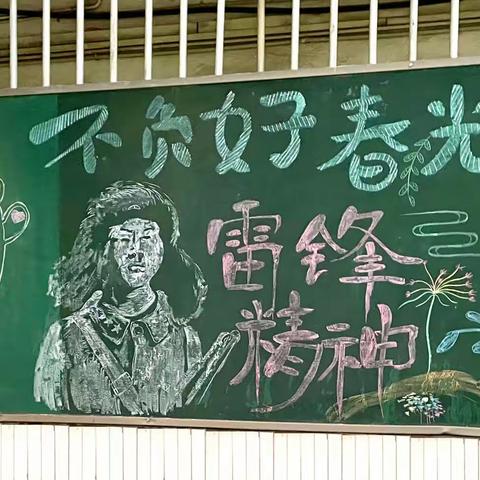 不负好春光
雷锋
精神